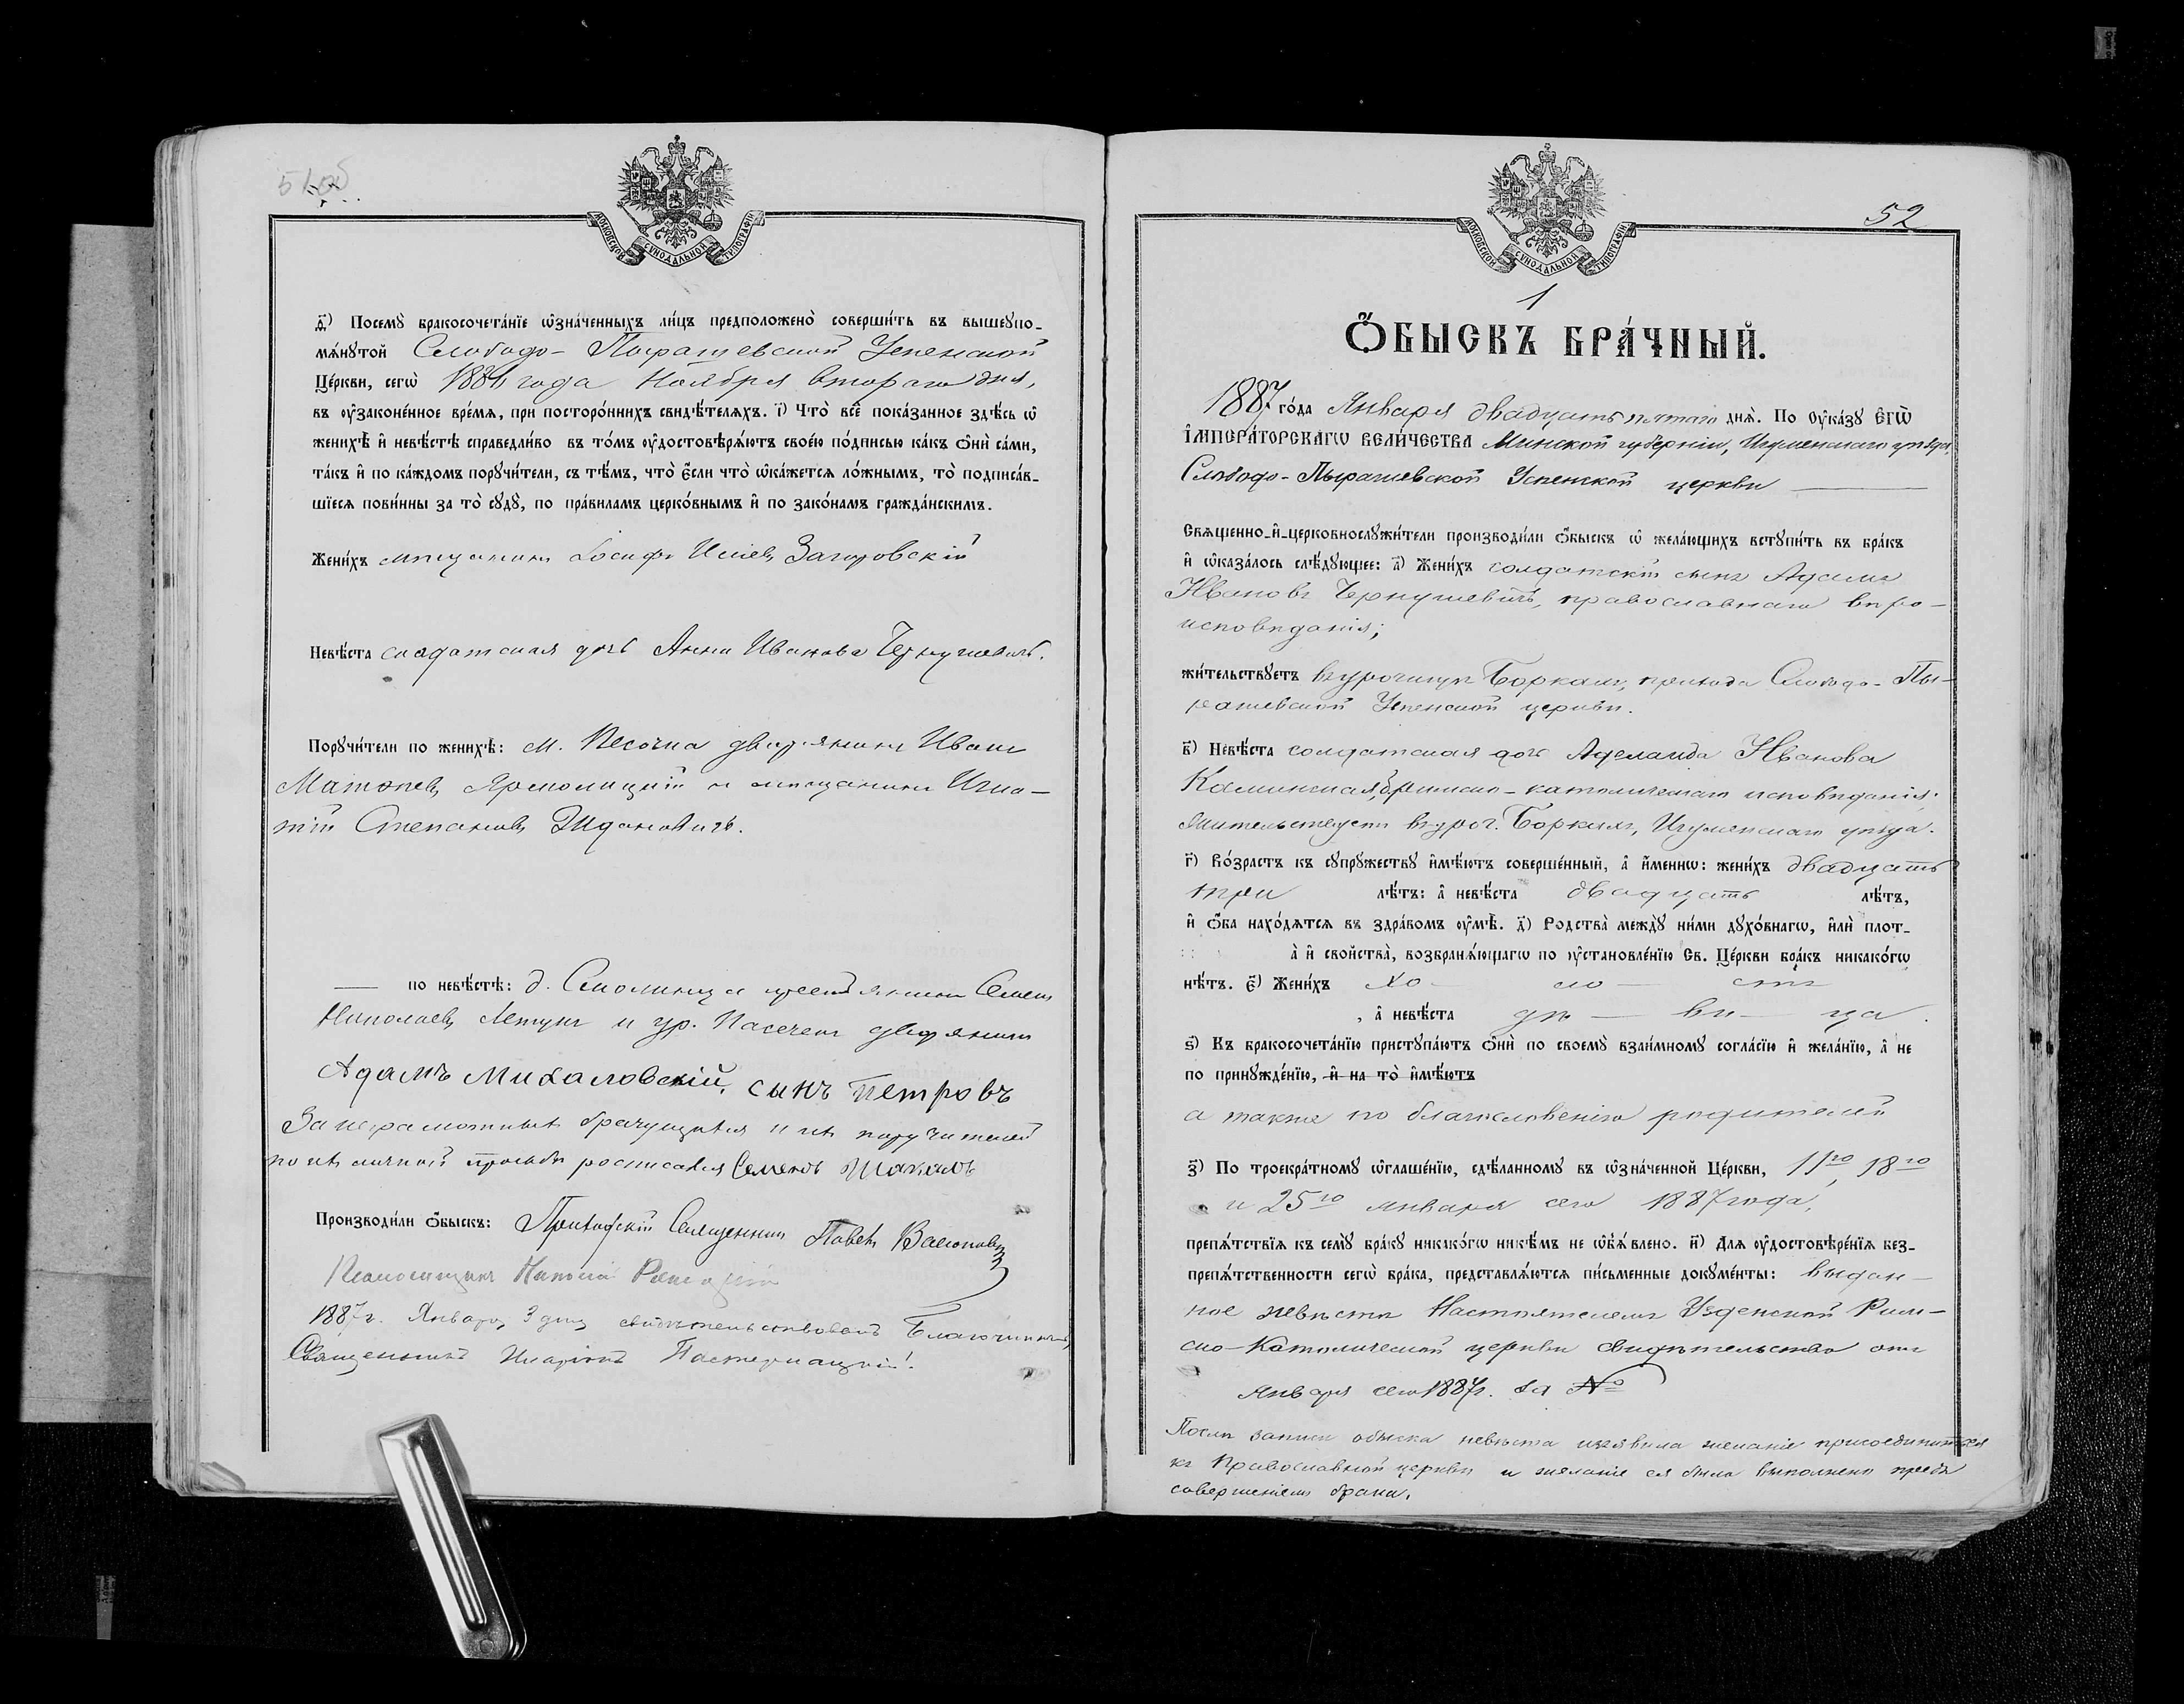 51об
МОСКОВСКОЙ СУНОДАЛЬНОЙ ТИПОГРАФІИ
д҃і) Посемꙋ бракосочета́нїе ѡ҆зна́ченныхъ ли́цъ предположено̀ соверши́ть въ вышеꙋпо-
мѧ́нꙋтой Слободо-Пырашевской Успенской
Це́ркви, сегѡ̀ 1886 года Ноября втораго дня,
въ ᲂу҆законе́нное вре́мѧ, при посторо́ннихъ свидѣ́телѧхъ. і҃) Что̀ всѐ пока́занное здѣ́сь ѡ҆
женихѣ̀ и҆ невѣ́стѣ справедли́во въ то́мъ ᲂу҆достовѣрѧ́ютъ свое́ю по́дписью ка́къ ѻ҆нѝ са́ми,
та́къ и҆ по ка́ждомъ порꙋчи́тели, съ тѣ́мъ, что̀ є҆́сли что̀ ѡ҆ка́жетсѧ ло́жнымъ, то̀ подписа́в-
шїесѧ пови́нны за то̀ сꙋдꙋ̀, по пра́виламъ церко́внымъ и҆ по зако́намъ гражда́нскимъ.
Жени́хъ мѣщанинъ Іосифъ Загоровскій
Невѣ́ста солдатская дочь Анна Иванова Чернушевичъ.
Порꙋчи́тели по женихѣ̀: м. Песочна дворянинъ Иванъ
Ярмолицкій и мѣщанинъ Игна-
тій Степановъ Ждановичъ.
— по невѣ́стѣ: д. крестьянинъ Семенъ
Николаевъ Летунъ и ур. Пасечень дворянинъ
Адамъ Михаловскій, сынъ Петровъ
За неграмотныхъ брачущихся и ихъ поручителей
по ихъ личной просьбѣ росписался Семенъ
Производи́ли ѻ҆́быскъ: Приходскій Священникъ Павелъ
Псаломщикъ Николай
1887 г. Января 3 дня свидѣтельствовалъ Благочинный,
Священникъ Иларіонъ Пастернацкій.
52
МОСКОВСКОЙ СУНОДАЛЬНОЙ ТИПОГРАФІИ
1
Ѻ҆́БЫСКЪ БРА́ЧНЫЙ.
1887 го́да Января двадцать пятаго днѧ̀. По ᲂу҆ка́зꙋ Є҆гѡ̀
І҆МПЕРА́ТОРСКАГѠ ВЕЛИ́ЧЕСТВА Минской губерніи, Игуменскаго уѣзда,
Слободо-Пырашевской Успенской церкви —
Свѧще́нно-и҆-церковнослꙋжи́тели производи́ли ѻ҆́быскъ ѡ҆ жела́ющихъ встꙋпи́ть въ бра́къ
и҆ ѡ҆каза́лось слѣ́дꙋющее: а҃) Жени́хъ солдатскій сынъ Адамъ
Ивановъ Чернушевичъ, православнаго вѣро-
исповѣданія;
жи́тельствꙋетъ въ урочищѣ Боркахъ, прихода Слободо-Пы-
рашевской Успенской церкви.
в҃) Невѣ́ста солдатская дочь Аделаида Иванова
Каминская, римско-католическаго исповѣданія;
жительствуетъ въ уроч. Боркахъ, Игуменскаго уѣзда.
г҃) Во́зрастъ къ сꙋпрꙋ́жествꙋ и҆мѣ́ютъ соверше́нный, а҆ и҆́меннѡ: жени́хъ двадцать
три лѣ́тъ: а҆ невѣ́ста двадцать лѣ́тъ,
и҆ ѻ҆́ба нахо́дѧтсѧ въ здра́вомъ ᲂу҆мѣ̀. д҃) Родства̀ междꙋ̀ ни́ми дꙋхо́внагѡ, и҆лѝ плот-
а҆̀ и҆ сво́йства, возбранѧ́ющагѡ по ᲂу҆становле́нїю Св. Це́ркви бра́къ никако́гѡ
нѣ́тъ. є҃) Жени́хъ хо- ло- стъ
, а҆ невѣ́ста дѣ — ви — ца.
ѕ҃) Къ бракосочета́нїю пристꙋпа́ютъ ѻ҆нѝ по своемꙋ̀ взаи́мномꙋ согла́сїю и҆ жела́нїю, а҆ не
по принꙋжде́нїю, и҆ на то̀ и҆мѣ́ютъ
а также по благословенію родителей
з҃) По троекра́тномꙋ ѡ҆глаше́нїю, сдѣ́ланномꙋ въ ѡ҆зна́ченной Це́ркви, 11го, 18го
и 25го января сего 1887 года,
препѧ́тствїѧ къ семꙋ̀ бра́кꙋ никако́гѡ никѣ́мъ не ѡ҆б̾ѧ́влено. и҃) Длѧ ᲂу҆достовѣре́нїѧ без-
препѧ́тственности сегѡ̀ бра́ка, представлѧ́ютсѧ пи́сьменные докꙋме́нты: выдан-
ное невѣстѣ Настоятелемъ Узденской Рим-
ско-Католической церкви свидѣтельство отъ
января сего 1887 г. за №
Послѣ записи обыска невѣста изъявила желаніе присоединиться
къ Православной церкви и желаніе ея было выполнено предъ
совершеніемъ брака.